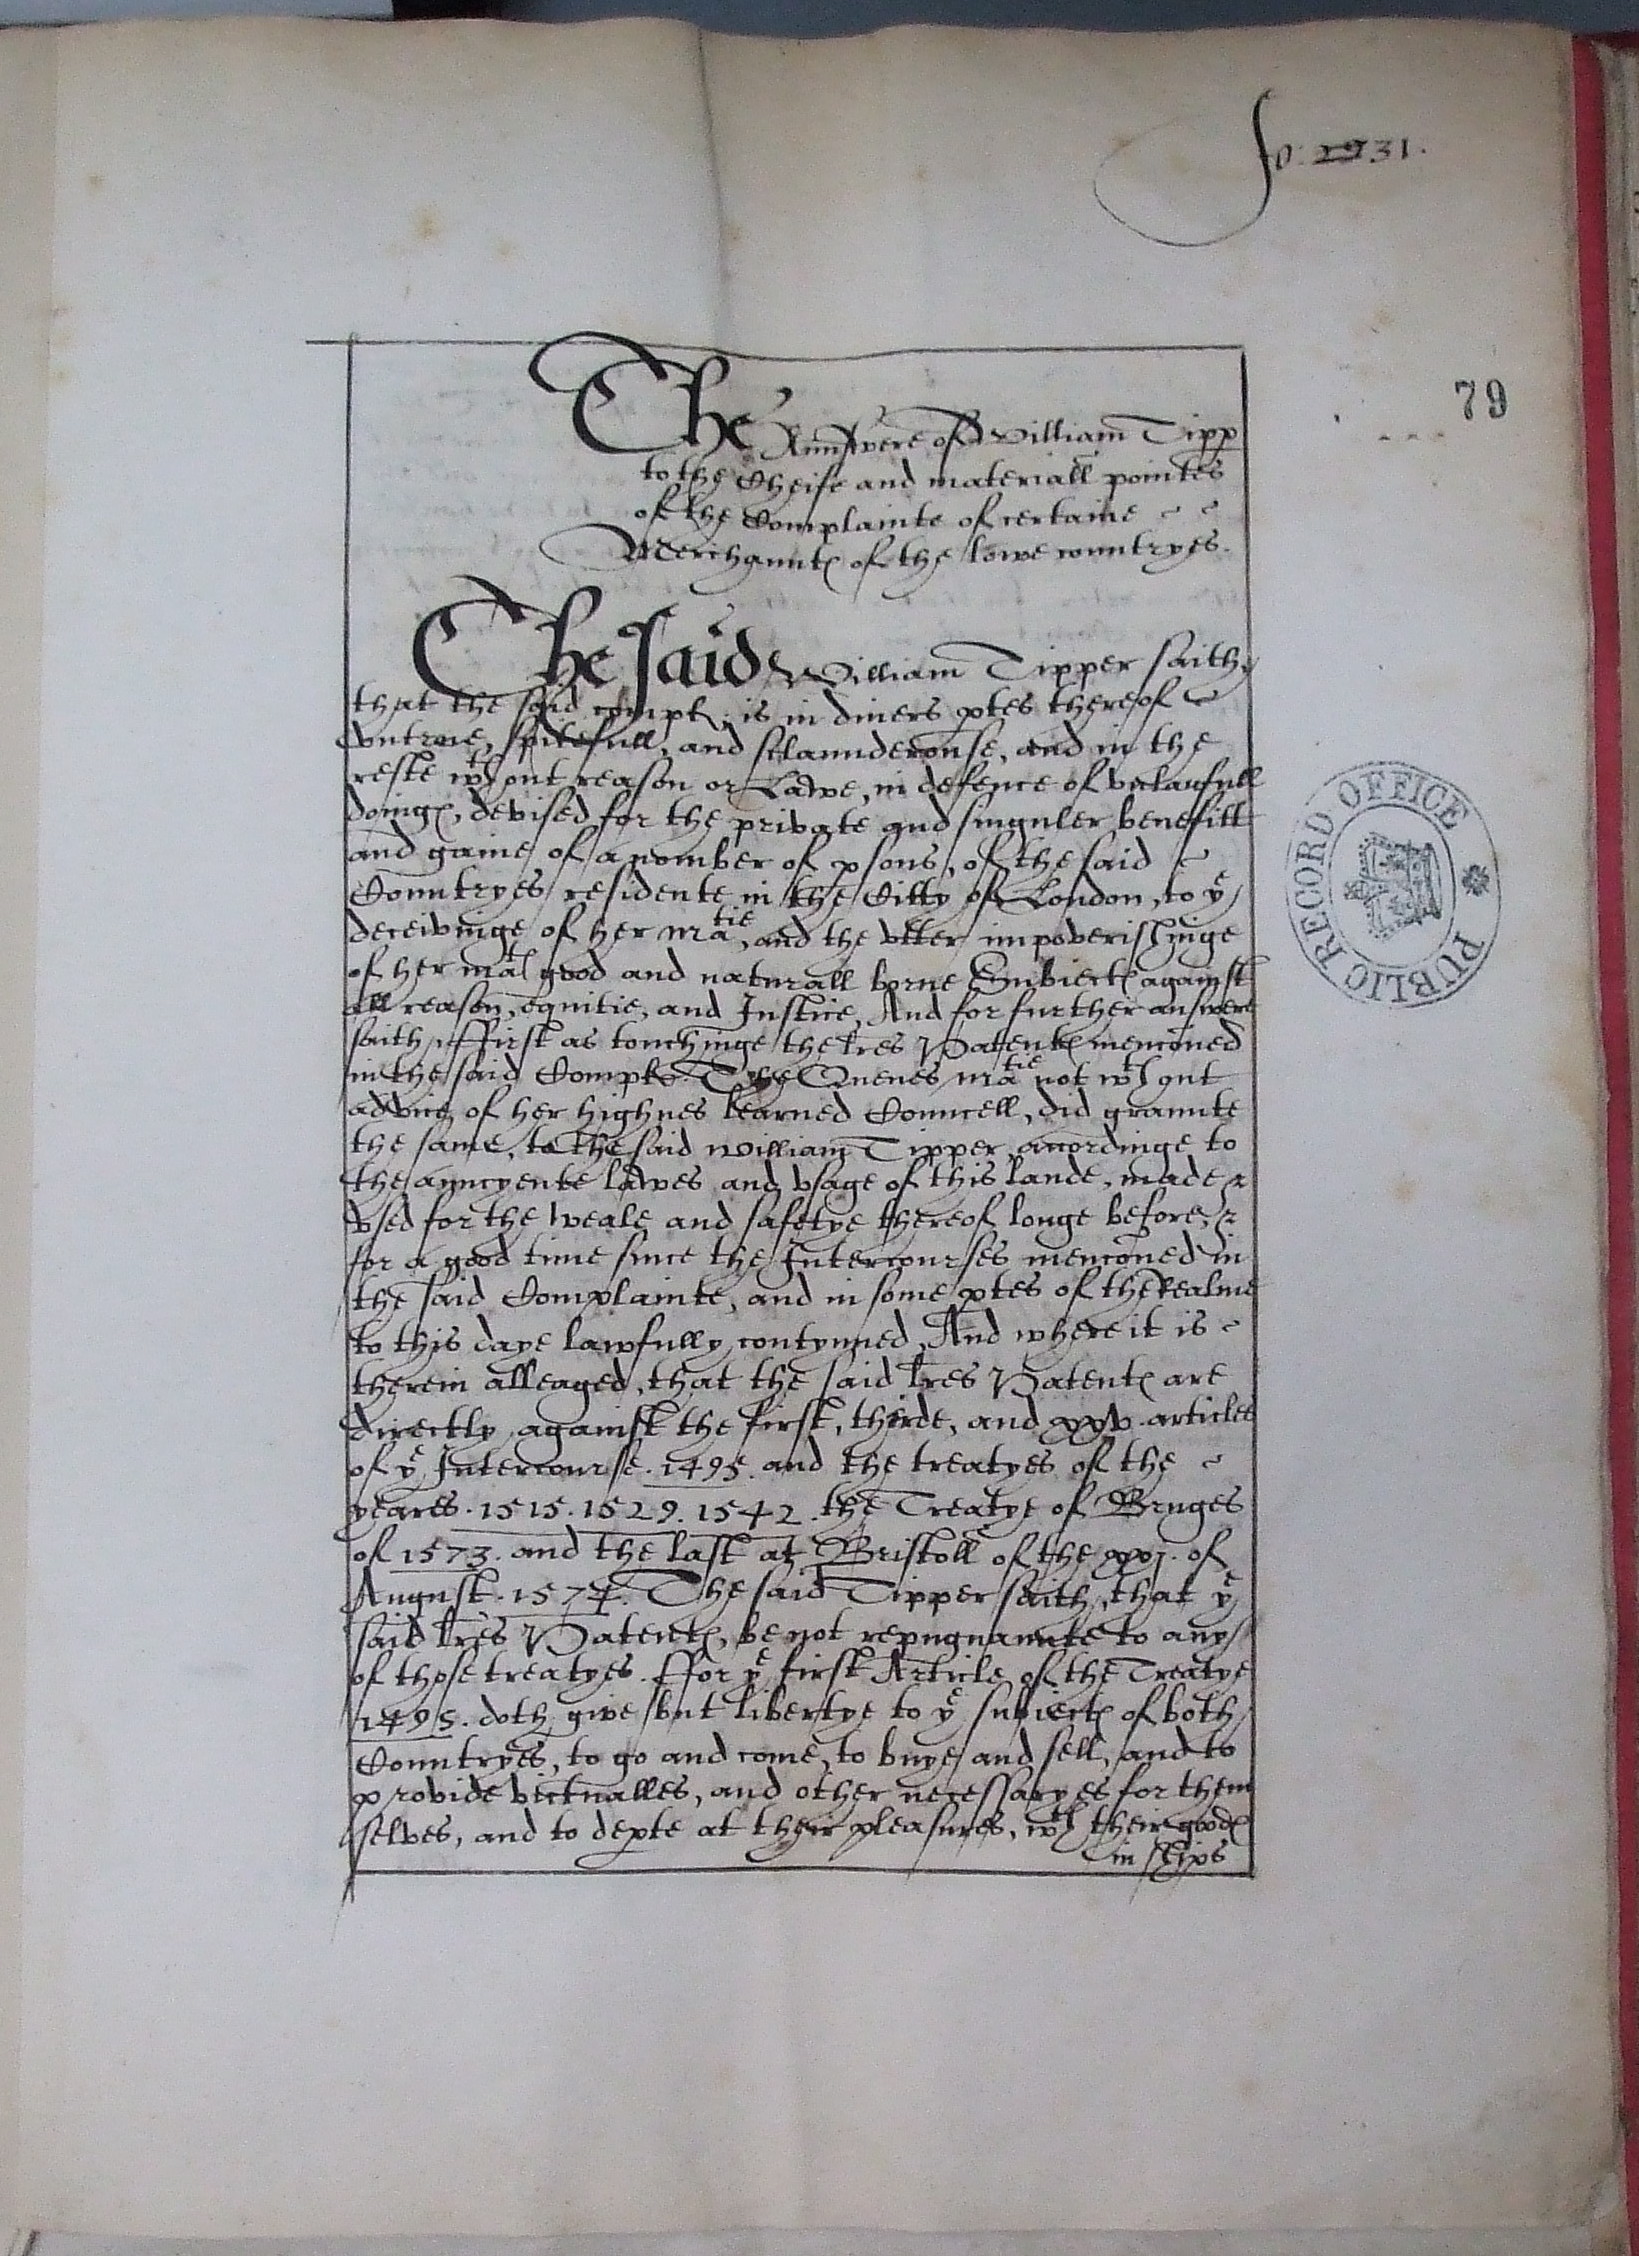 fo: 29 31.
79
The Aunswere of William Tipp
to the Cheife and materiall pointes
of the Complainte of certaine
Merchaunts of the lowe countryes.
The said William Tipper saith,
that the said compt. is in divers ptes thereof
vntrue, spitefull, and sclaunderouse, and in the
reste wthout reason or Lawe, in defence of vnlawfull
doings, devised for the private and singuler benefitt
and gaine of a nomber of psons, of the said
Countryes residente in the Citty of London, to ye
deceivinge of her matie, and the vtter impoverishinge
of her mats good and naturall borne Subiects against
all reason, equitie, and Justice, And for further answere
saith, ffirst as touchinge the lres Patents mencioned
in the said Compt. The Quenes matie not wthout
advice of her highnes learned Councell, did graunte
the same, to the said William Tipper, accordinge to
the auncyente lawes and vsage of this lande, made &
vsed for the weale and safetye thereof longe before, &
for a good time since the Intercourses mencioned in
the said Complainte, and in some ptes of the Realme
to this daye lawfully contynued, And where it is
therein alleaged, that the said lres Patents are
directly against the first, thirde, and xxv. articles
of ye Intercourse. 1495. and the treatyes of the
yeares. 1515. 1529. 1542. the Treatye of Bruges
of 1573. and the last at Bristoll of the xxj. of
August. 1574. The said Tipper saith, that ye
said lres Patents, be not repugnaunte to any
of those treatyes. ffor ye first Article of the Treatye
1495. doth give but libertye to ye subiects of both
Countryes, to go and come, to buye and sell, and to
provide victualles, and other necessaryes for them
selves, and to depte at their pleasures, wth their goods
in ships
PUBLIC RECORD OFFICE